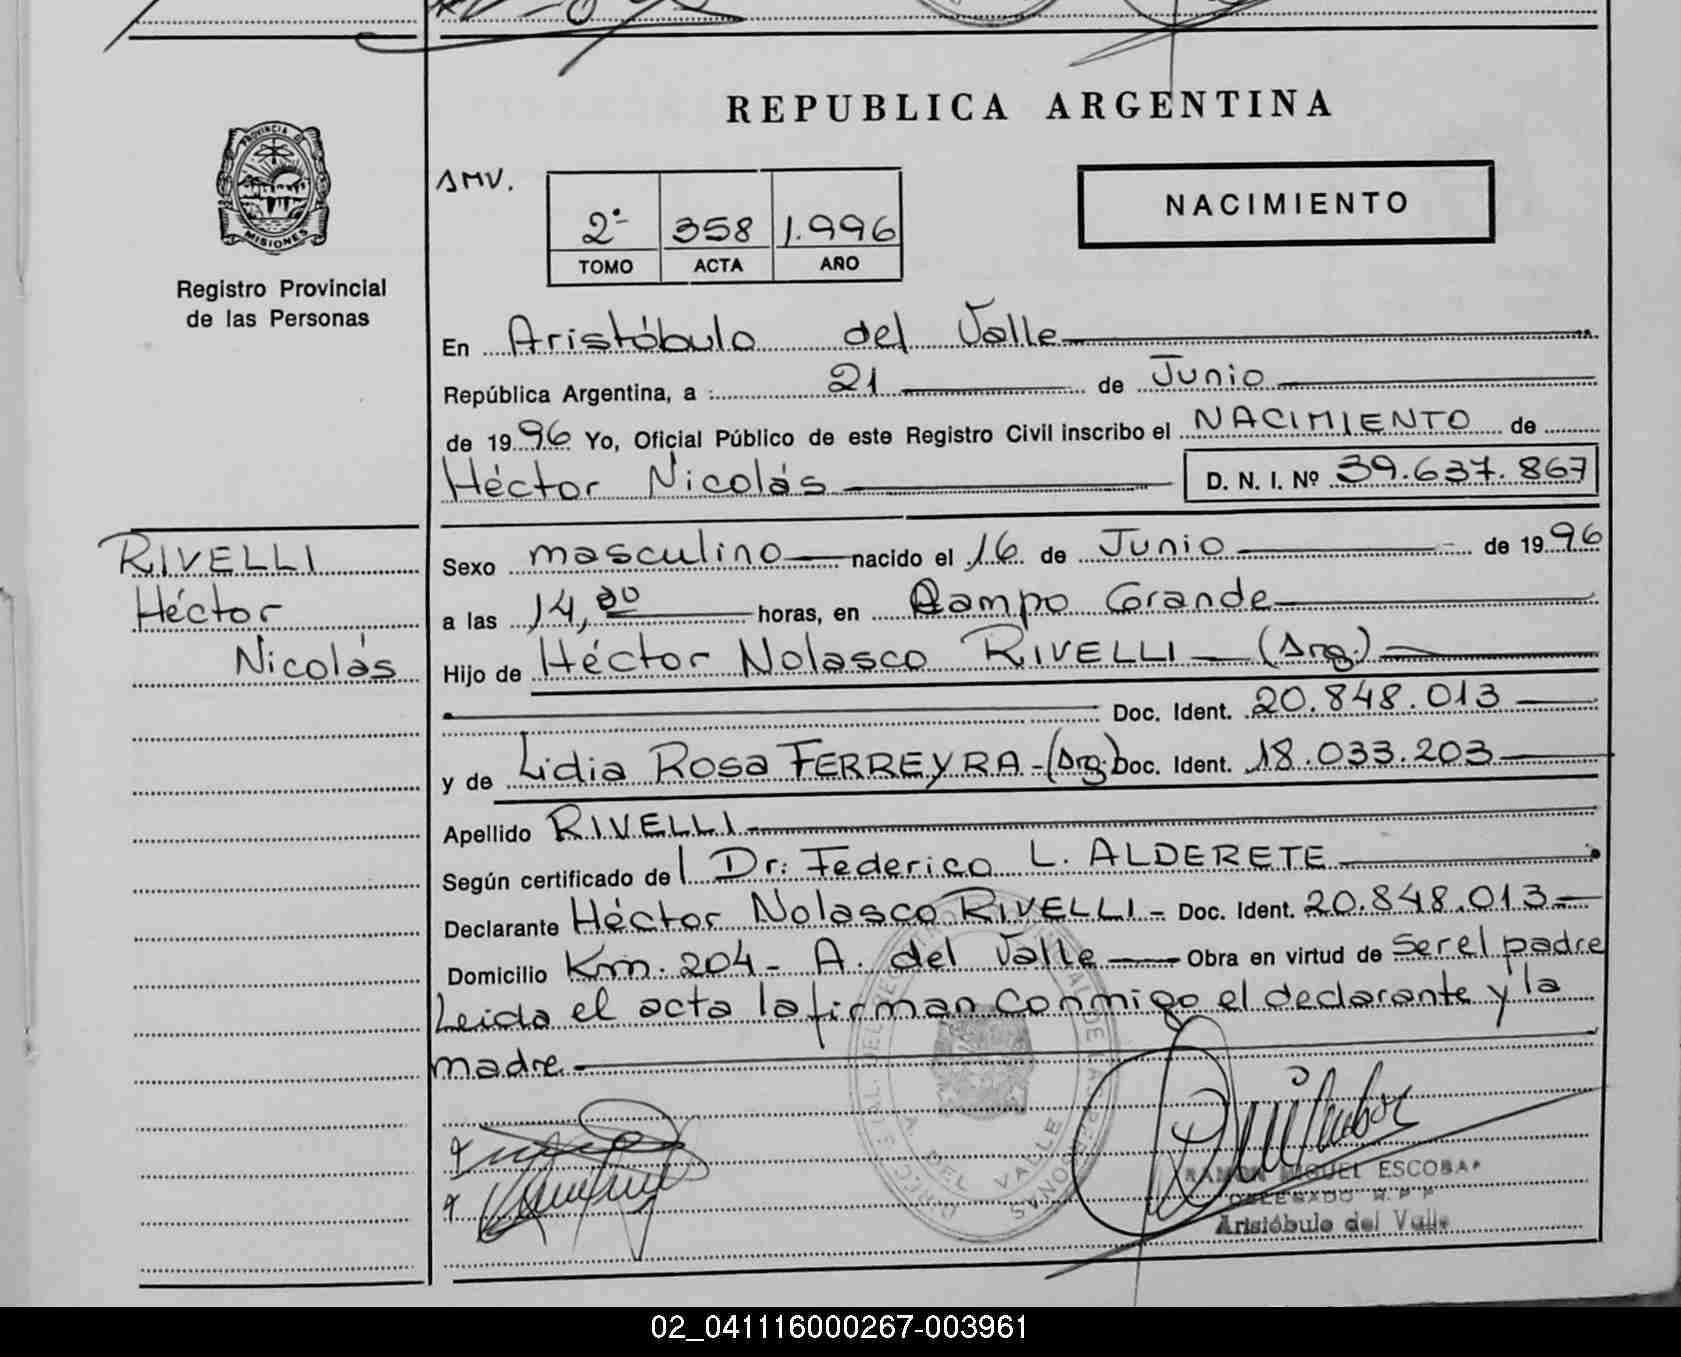 REPUBLICA ARGENTINA
PROVINCIA DE
MISIONES
Registro Provincial
de las Personas
AMV.
2º 358 1.996
TOMO ACTA AÑO
NACIMIENTO
En Aristóbulo del Valle
República Argentina, a : 21 de Junio
de 1996 Yo, Oficial Público de este Registro Civil inscribo el NACIMIENTO de
Héctor Nicolás D. N. I. Nº 39.637.867
RIVELLI
Héctor
Nicolás
Sexo masculino nacido el 16 de Junio de 1996
a las 14,00 horas, en Campo Grande
Hijo de Héctor Nolasco RIVELLI (Arg.)
Doc. Ident. 20.848.013
y de Lidia Rosa FERREYRA - (Arg.) Doc. Ident. 18.033.203
Apellido RIVELLI
Según certificado del Dr: Federico L. ALDERETE
Declarante Héctor Nolasco RIVELLI - Doc. Ident. 20.848.013
Domicilio Km. 204 - A. del Valle Obra en virtud de ser el padre
Leida el acta la firman conmigo el declarante y la
madre
A. DEL VALLE
RAMON MIGUEL ESCOBAR
DELEGADO R.P.P
Aristóbulo del Valle
02_041116000267-003961